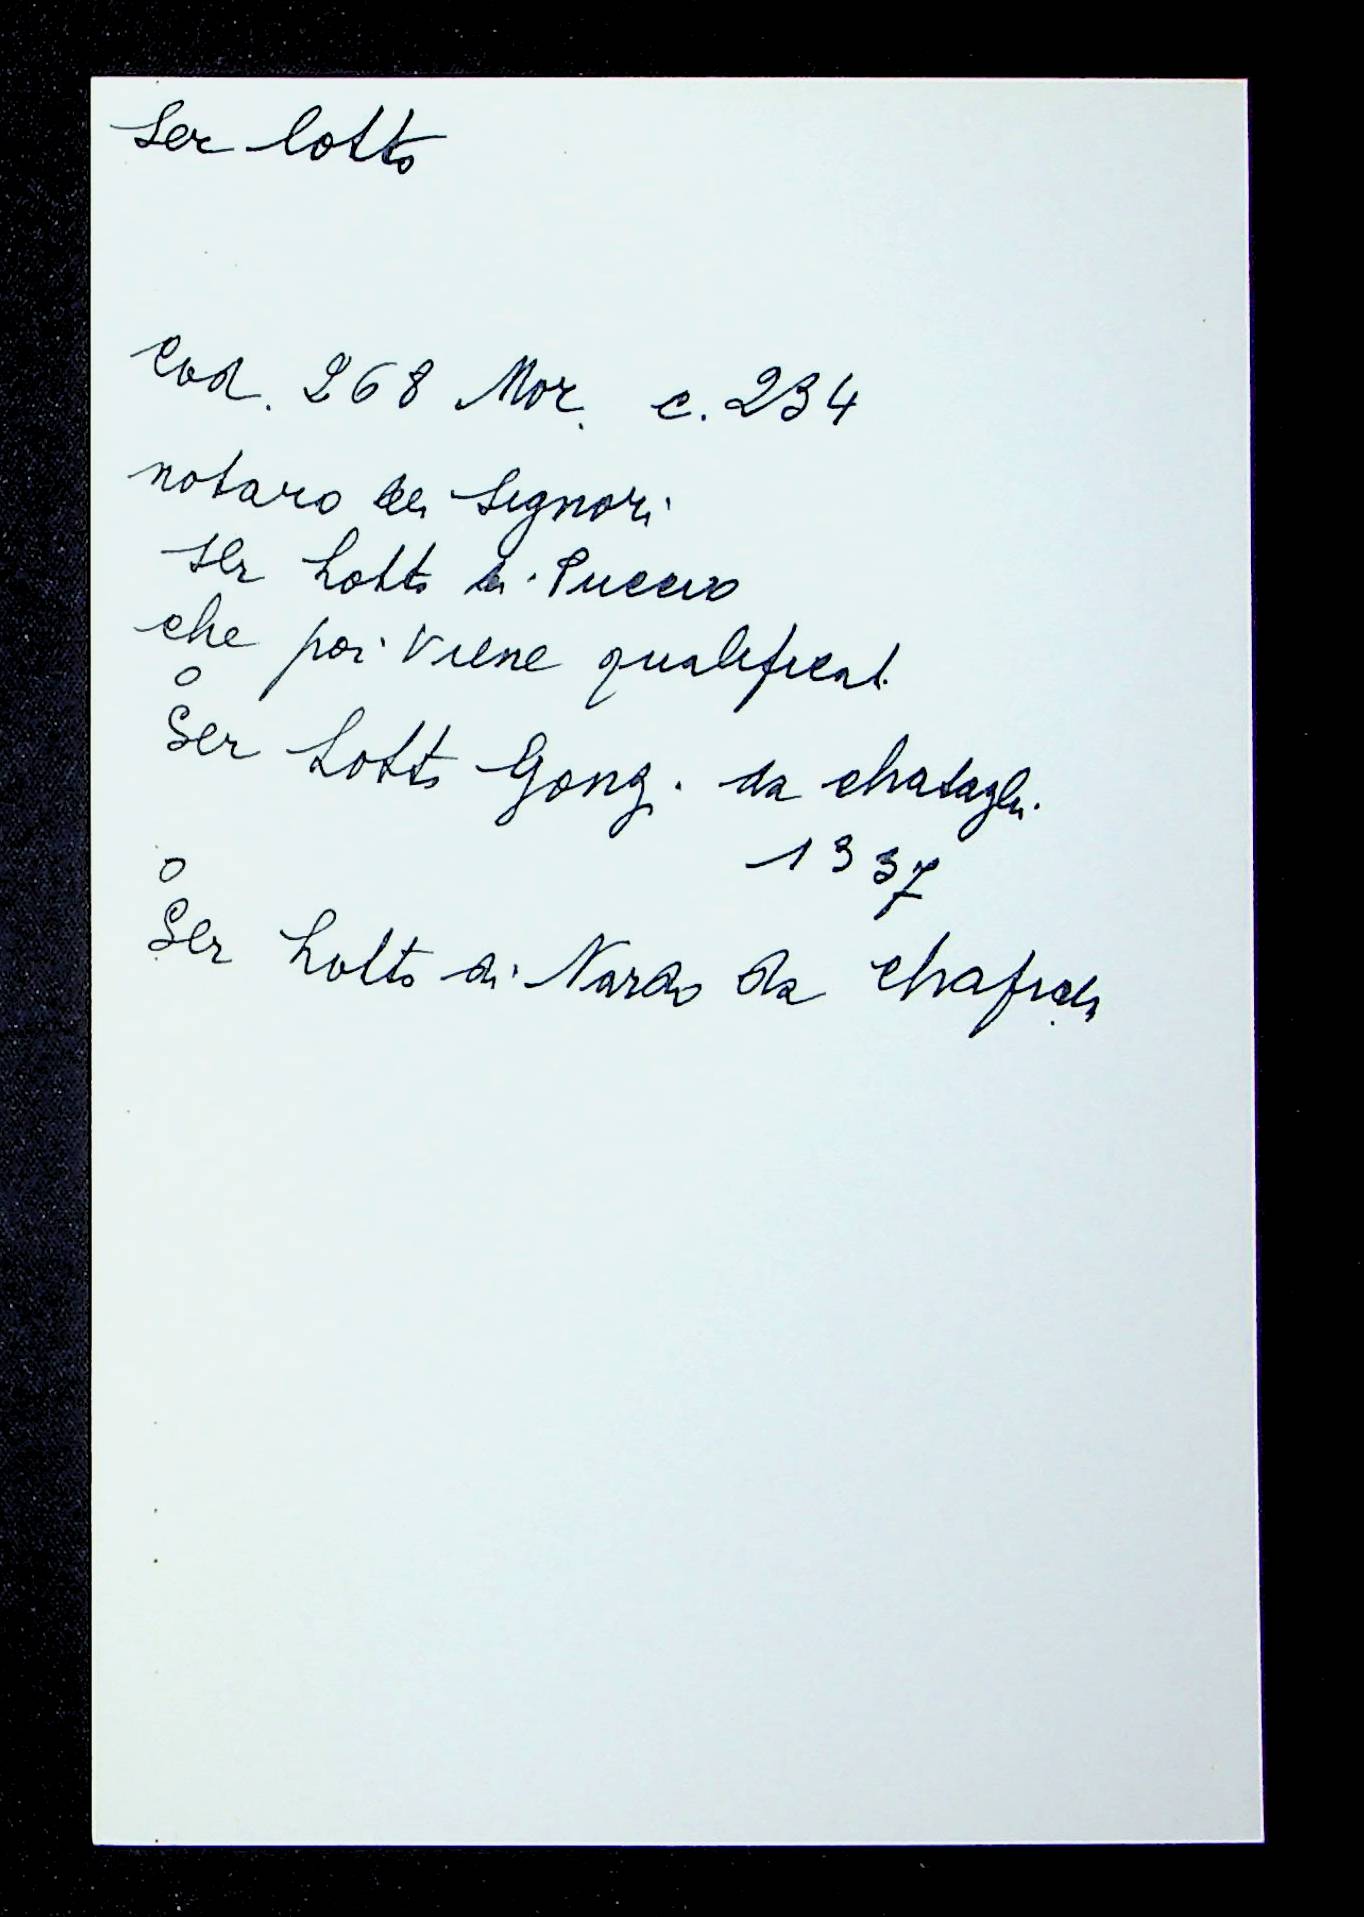 Ser Lotto
Cod. 268 Mor. c. 234
notaro dei Signori
Ser Lotto di Puccio
che poi viene qualificat.
o
Ser Lotto Gonz. da
1337
o
Ser Lotto di Nardo da